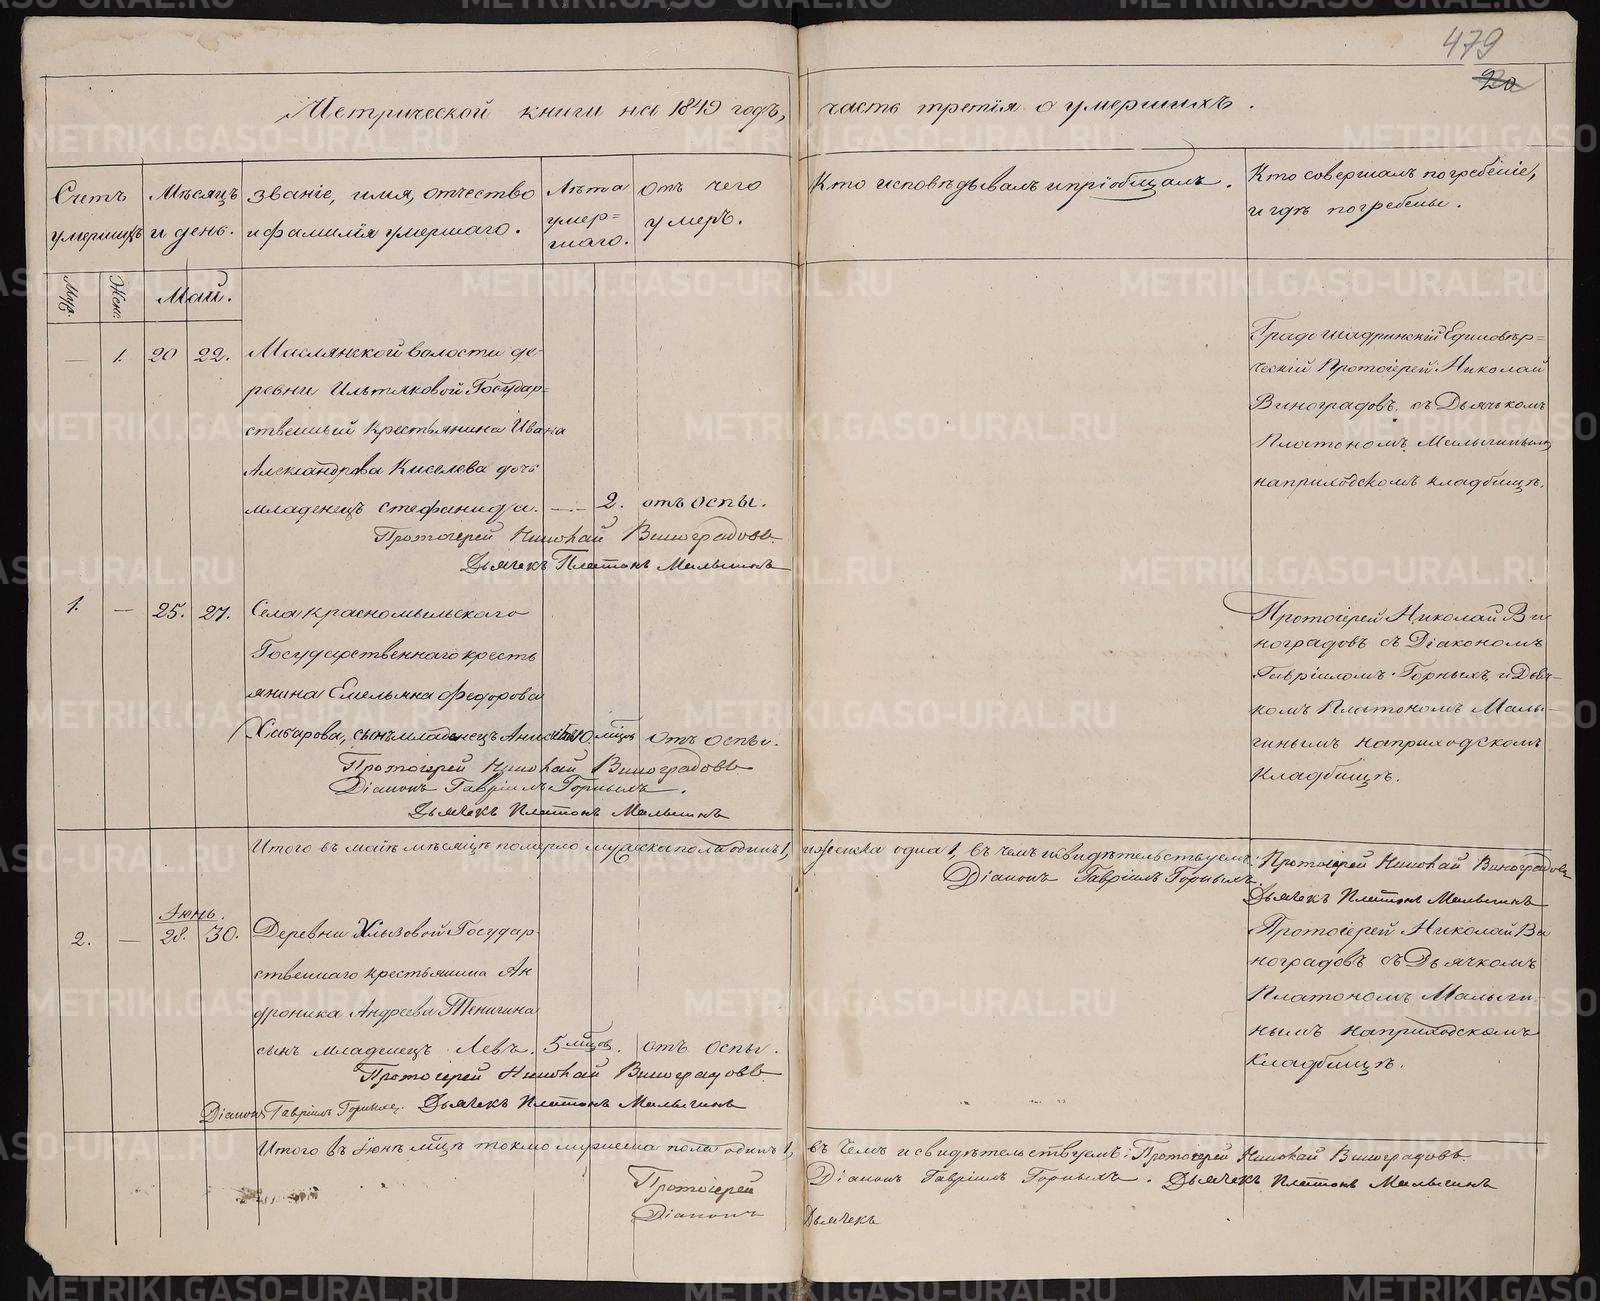 479
20
Метрической книги на 1849 годъ, часть третія о умершихъ.
Счетъ умершихъ
Мѣсяцъ и день.
званіе, имя, отчество и фамилія умершаго.
Лѣта умер=шаго.
отъ чего умеръ.
Кто исповѣдывалъ и пріобщалъ.
Кто совершалъ погребеніе, и гдѣ погребены.
Муж.
Жен.
Май.
— 1. 20 22.
Маслянской волости де-
ревни Ильтяковой Государ=
ственный крестьянина Ивана
Александрова Киселева дочь
младенецъ Стефанида. — 2. отъ оспы.
Протоіерей Николай Виноградовъ.
Дьячекъ Платонъ Малыгинъ
Градо Шадринскій Единовѣр=
ческій Протоіерей Николай
Виноградовъ съ Дьячькомъ
Платономъ Малыгинымъ
на приходскомъ кладбищѣ.
1. — 25. 27.
Села Красномыльскаго
Государственнаго кресть
янина Емельяна Федорова
Хабарова, сынъ младенецъ 10 мѣсцъ отъ оспы.
Протоіерей Николай Виноградовъ
Діаконъ Гавріилъ Горныхъ.
Дьячекъ Платонъ Малыгинъ
Протоіерей Николай Ви
ноградовъ съ Діакономъ
Гавріиломъ Горныхъ, и Дья-
комъ Платономъ Малы-
гинымъ на приходскомъ
Кладбищѣ.
Итого въ маіѣ мѣсяцѣ померло мужеска пола одинъ 1, и женска одна 1, въ чемъ и свидѣтельствуемъ: Протоіерей Николай Виноградовъ
Діаконъ Гавріилъ Горныхъ
Дьячекъ Платонъ Малыгинъ
Іюнь.
2. — 28. 30.
Деревни Хлызовой Государ-
ственнаго крестьянина Ан
дроника Андреева Тенигина
сынъ младенецъ Левъ. 5 мѣсцов. отъ оспы.
Протоіерей Николай Виноградовъ
Діаконъ Гавріилъ Горныхъ. Дьячекъ Платонъ Малыгинъ
Протоіерей Николай Ви
ноградовъ съ Дьячкомъ
Платономъ Малыги-
нымъ на приходскомъ
Кладбищѣ.
Итого въ Іюнѣ мѣцѣ токмо мужеска пола одинъ 1, въ чемъ и свидѣтельствуемъ: Протоіерей Николай Виноградовъ.
Діаконъ Гавріилъ Горныхъ. Дьячекъ Платонъ Малыгинъ
Протоіерей
Діаконъ
Дьячекъ
METRIKI.GASO-URAL.RU